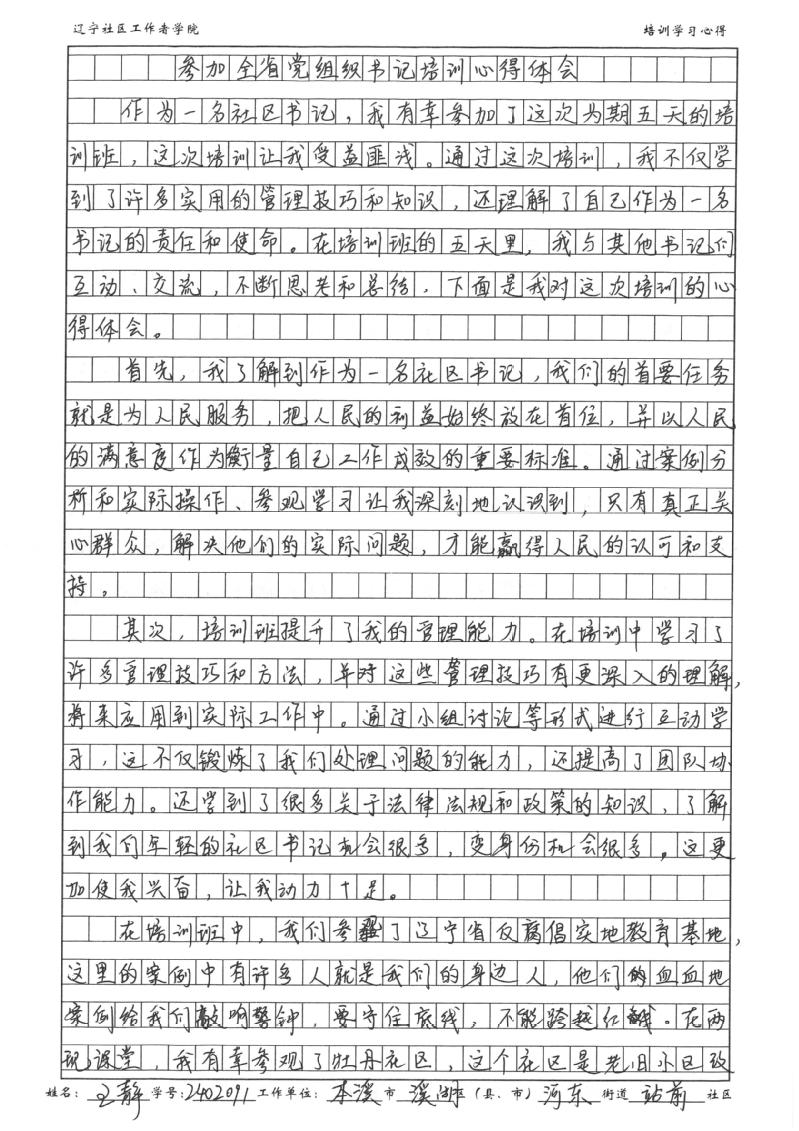 辽宁社区工作者学院 培训学习心得
参加全省党组织书记培训心得体会
作为一名社区书记，我有幸参加了这次为期五天的培
训班，这次培训让我受益匪浅。通过这次培训，我不仅学
到了许多实用的管理技巧和知识，还理解了自己作为一名
书记的责任和使命。在培训班的五天里，我与其他书记们
互动、交流，不断思考和总结，下面是我对这次培训的心
得体会。
首先，我了解到作为一名社区书记，我们的首要任务
就是为人民服务，把人民的利益始终放在首位，并以人民
的满意度作为衡量自己工作成效的重要标准。通过案例分
析和实际操作、参观学习让我深刻地认识到，只有真正关
心群众，解决他们的实际问题，才能赢得人民的认可和支
持。
其次，培训班提升了我的管理能力。在培训中学习了
许多管理技巧和方法，并对这些管理技巧有更深入的理解，
将来应用到实际工作中。通过小组讨论等形式进行互动学
习，这不仅锻炼了我们处理问题的能力，还提高了团队协
作能力。还学到了很多关于法律法规和政策的知识，了解
到我们年轻的社区书记机会很多，变身份机会很多。这更
加使我兴奋，让我动力十足。
在培训班中，我们参观了辽宁省反腐倡实地教育基地，
这里的案例中有许多人就是我们的身边人，他们的血血地
案例给我们敲响警钟，要守住底线，不能跨越红线。在两
现课堂，我有幸参观了牡丹社区，这个社区是老旧小区改
姓名：王静 学号：2402091 工作单位：本溪 市 溪湖 区（县、市） 河东 街道 站前 社区